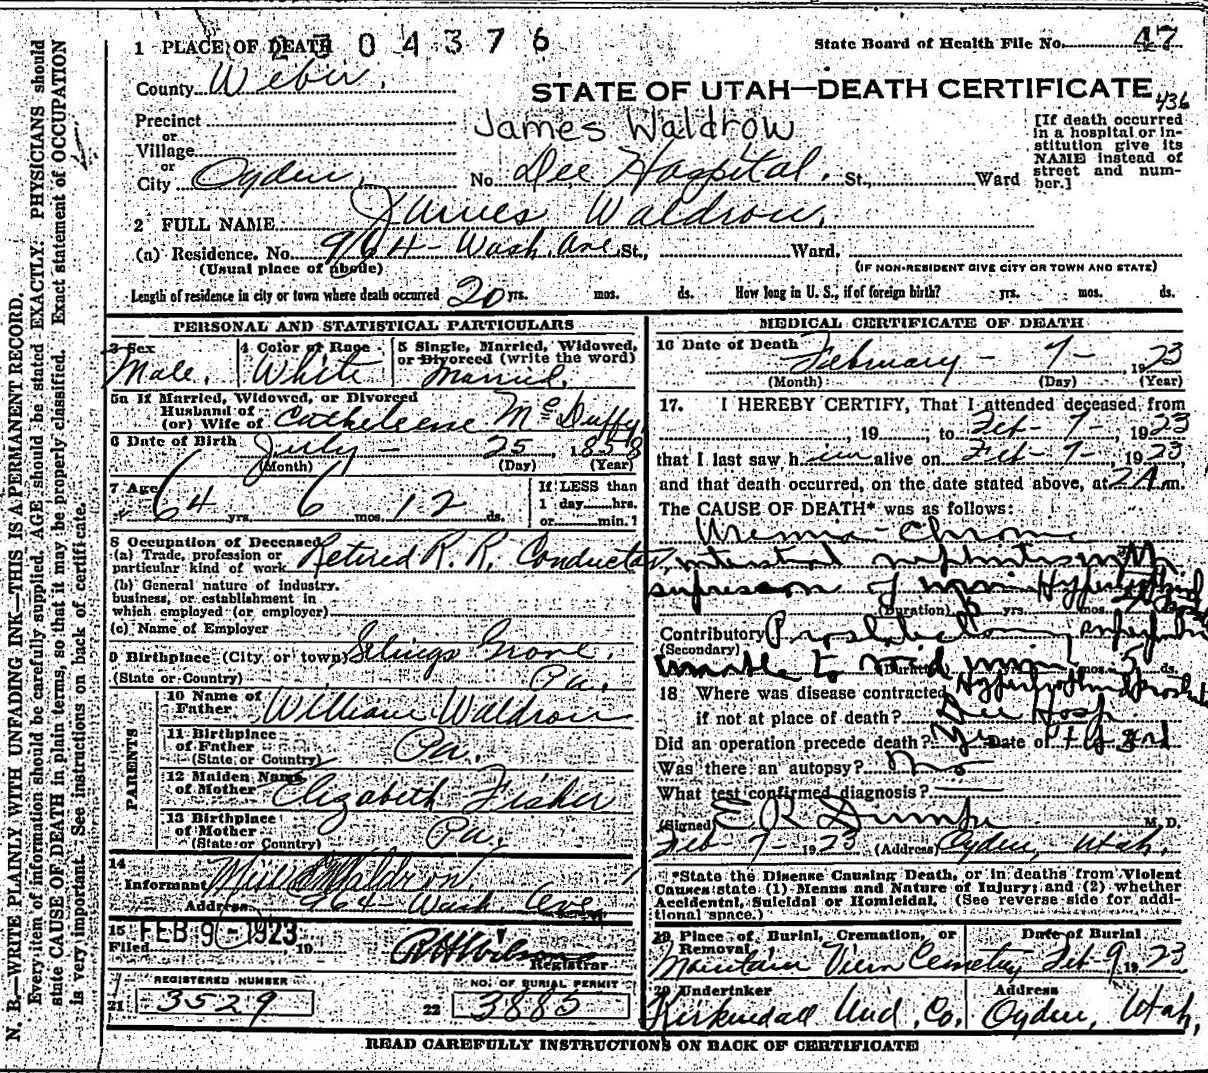 2304376
1 PLACE OF DEATH
State Board of Health File No. 47
County Weber.
STATE OF UTAH—DEATH CERTIFICATE
436
Precinct
or
Village
or
City Ogden.
James Waldrow
No. Dee Hospital. St., Ward
[If death occurred
in a hospital or in-
stitution give its
NAME instead of
street and num-
ber.]
2 FULL NAME James Waldron.
(a) Residence. No. 964- Wash. Ave. St., Ward.
(Usual place of abode)
(IF NON-RESIDENT GIVE CITY OR TOWN AND STATE)
Length of residence in city or town where death occurred 20 yrs. mos. ds. How long in U. S., if of foreign birth? yrs. mos. ds.
PERSONAL AND STATISTICAL PARTICULARS
3 Sex
Male.
4 Color or Race
White
5 Single, Married, Widowed,
or Divorced (write the word)
Married.
5a If Married, Widowed, or Divorced
Husband of
(or) Wife of Catheleene McDuffy
6 Date of Birth July - 25, 1858
(Month) (Day) (Year)
7 Age 64 yrs. 6 mos. 12 ds.
If LESS than
1 day hrs.
or min.?
8 Occupation of Deceased
(a) Trade, profession or
particular kind of work Retired R. R. Conductor,
(b) General nature of industry.
business, or establishment in
which employed (or employer)
(c) Name of Employer
9 Birthplace (City or town) Selings Grove.
(State or Country) Pa.
PARENTS
10 Name of
Father William Waldron
11 Birthplace
of Father Pa.
(State or Country)
12 Maiden Name
of Mother Elizabeth Fisher
13 Birthplace
of Mother Pa.
(State or Country)
14
Informant Waldron.
Address 964- Wash. Ave.
15
Filed FEB 9 - 1923 19
R H Wilson
Registrar
21 REGISTERED NUMBER
3529
22 NO. OF BURIAL PERMIT
3885
MEDICAL CERTIFICATE OF DEATH
16 Date of Death
February - 7 - , 1923
(Month) (Day) (Year)
17. I HEREBY CERTIFY, That I attended deceased from
, 19 , to Feb - 7 - , 1923
that I last saw him alive on Feb - 7 - , 1923,
and that death occurred, on the date stated above, at 2 A m.
The CAUSE OF DEATH* was as follows:
Uremia - Chronic
interstitial nephritis
supression of
(Duration) yrs. mos. ds.
Contributory
(Secondary)
unable to void
(Duration) mos. 5 ds.
18 Where was disease contracted
if not at place of death? Dee Hosp
Did an operation precede death? Yes Date of
Was there an autopsy? No
What test confirmed diagnosis?
(Signed) E R Dumke M. D.
Feb - 7 - 1923 (Address) Ogden, Utah.
*State the Disease Causing Death, or in deaths from Violent
Causes state (1) Means and Nature of Injury; and (2) whether
Accidental, Suicidal or Homicidal. (See reverse side for addi-
tional space.)
19 Place of Burial, Cremation, or
Removal
Mountain View Cemetery
Date of Burial
Feb - 9, 1923
20 Undertaker
Kirkendall Und. Co.
Address
Ogden, Utah,
READ CAREFULLY INSTRUCTIONS ON BACK OF CERTIFICATE
N. B.—WRITE PLAINLY WITH UNFADING INK—THIS IS A PERMANENT RECORD.
Every item of information should be carefully supplied. AGE should be stated EXACTLY. PHYSICIANS should
state CAUSE OF DEATH in plain terms, so that it may be properly classified. Exact statement of OCCUPATION
is very important. See instructions on back of certificate.